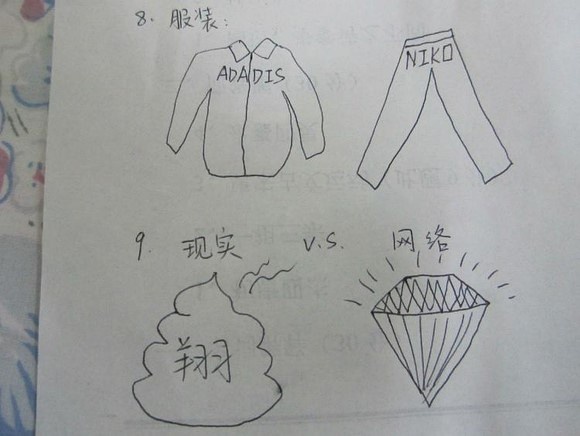 8. 服装:
ADADIS
NIKO
9. 现实 V.S. 网络
翔